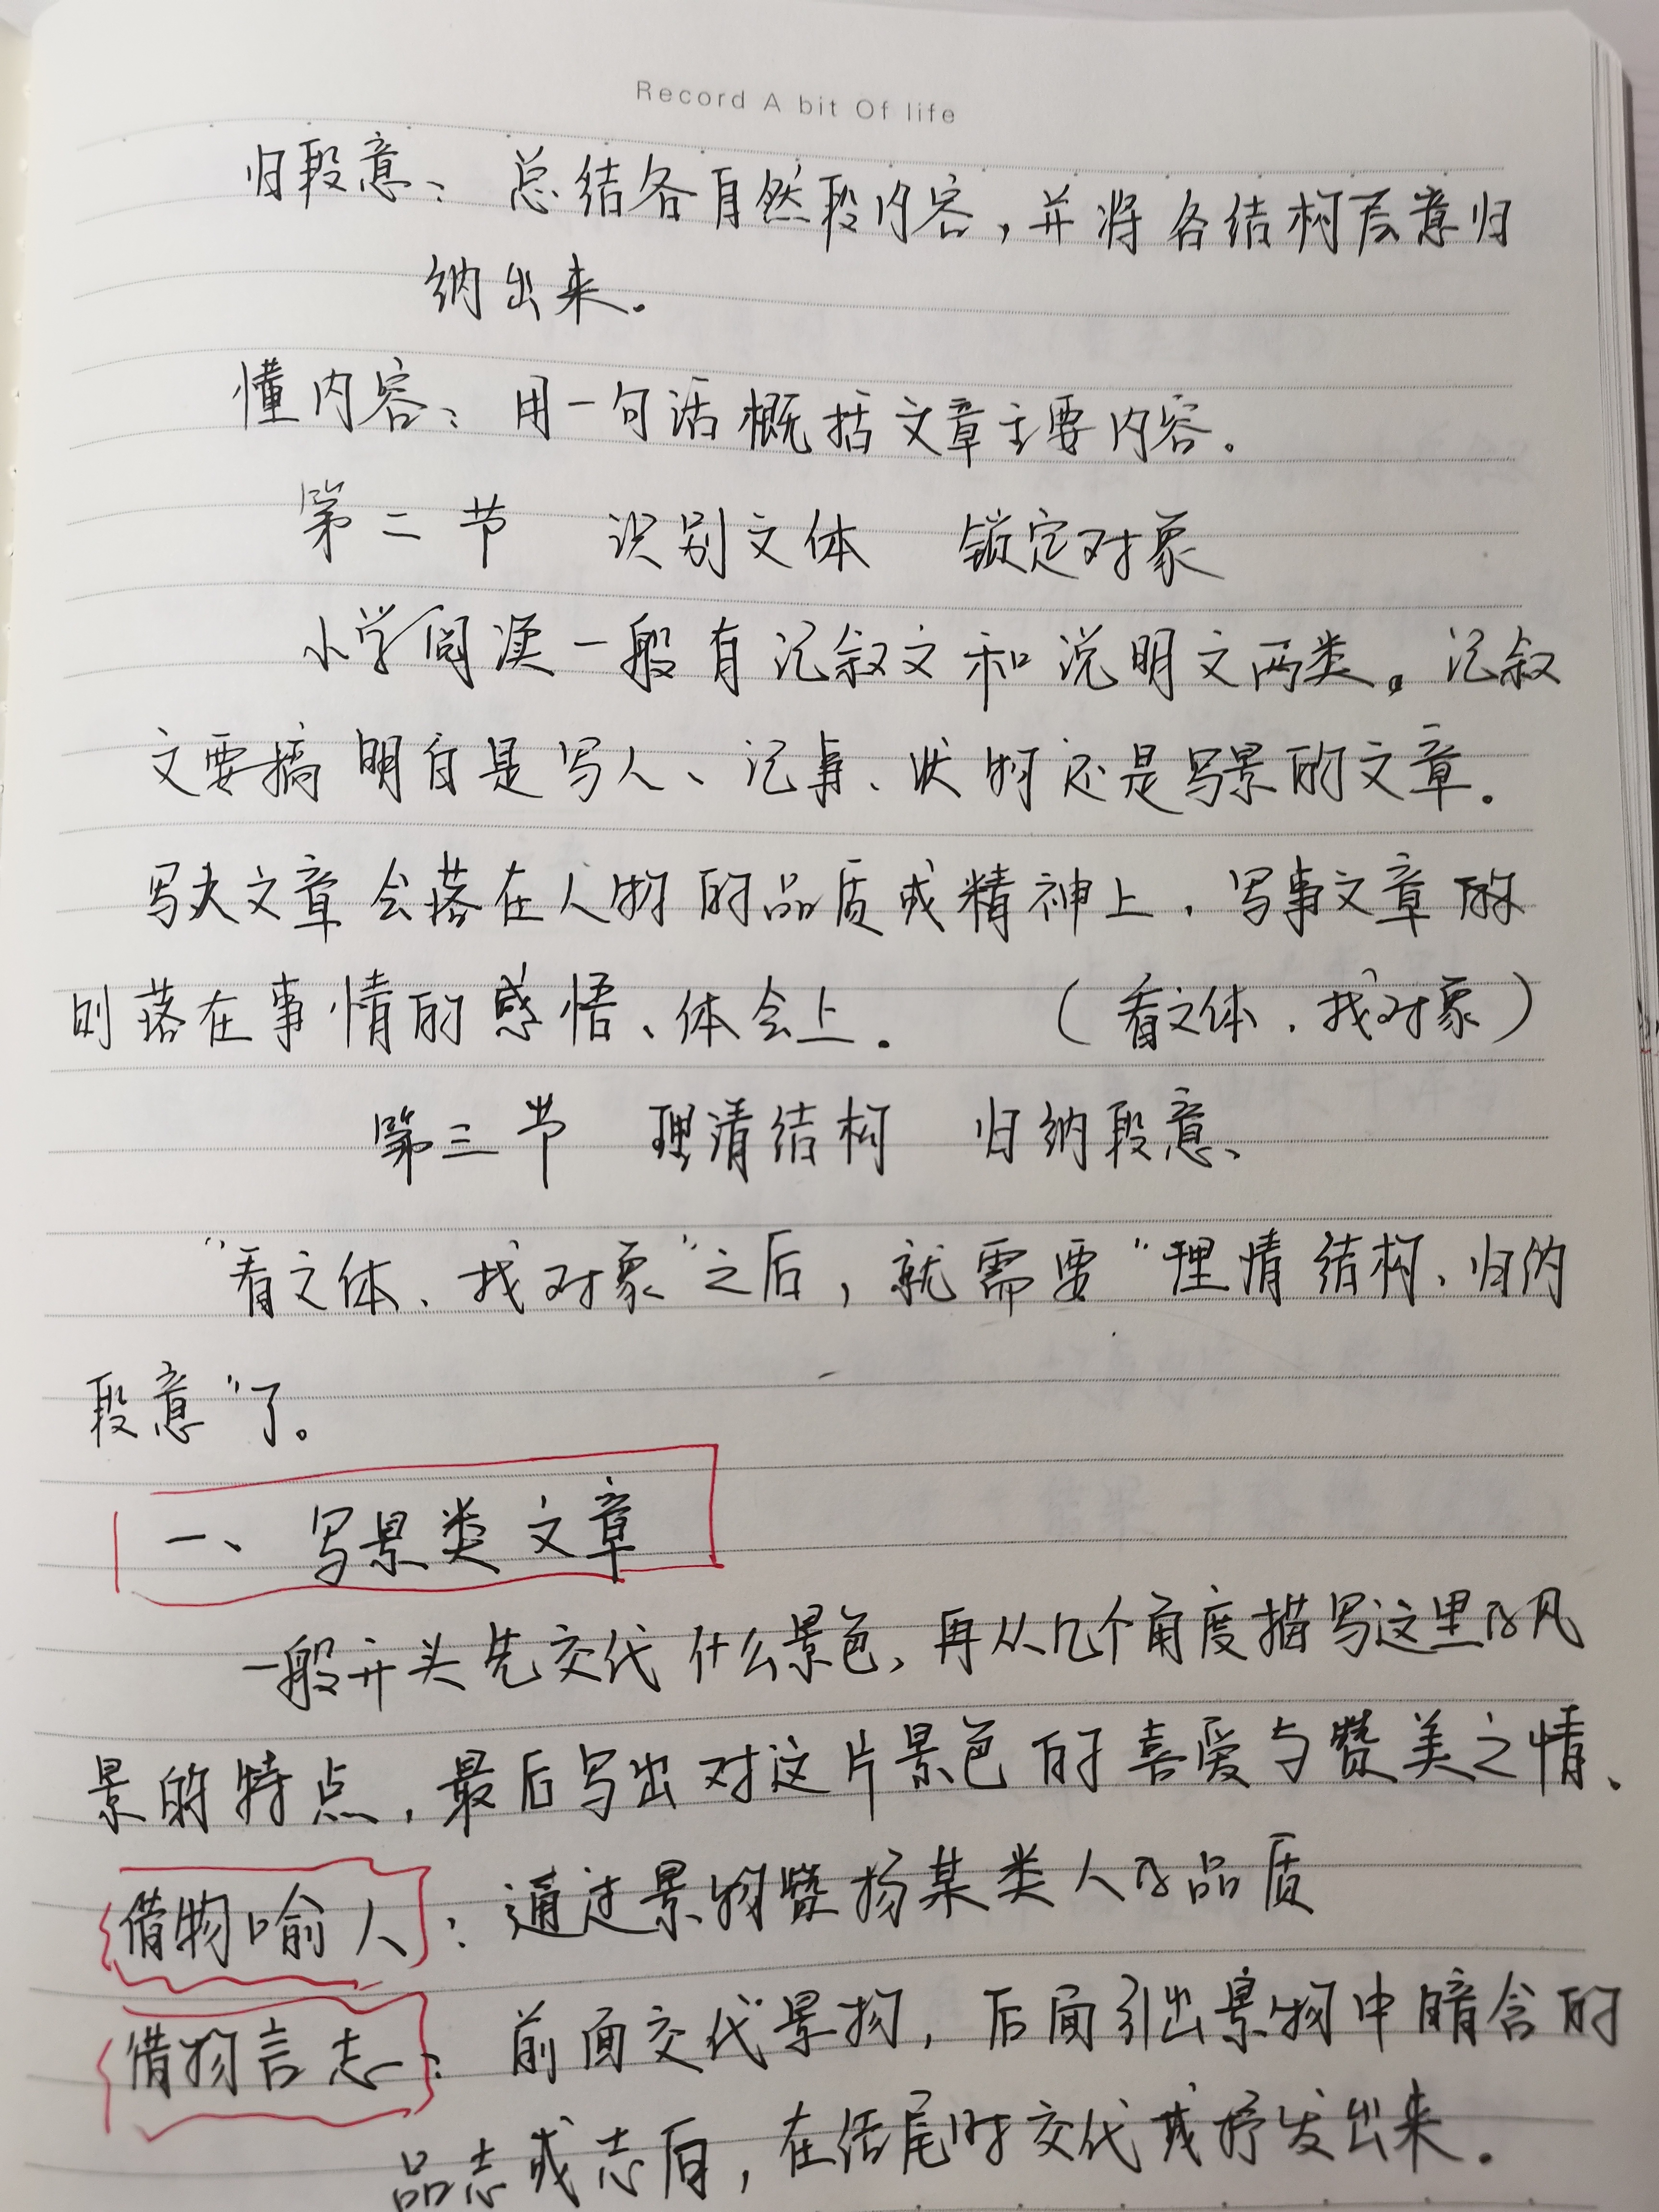 Record A bit Of life
归段意：总结各自然段内容，并将各结构层意归
纳出来。
懂内容：用一句话概括文章主要内容。
第二节 识别文体 锁定对象
小学阅读一般有记叙文和说明文两类。记叙
文要搞明白是写人、记事、状物还是写景的文章。
写人文章会落在人物的品质或精神上，写事文章的
则落在事情的感悟、体会上。（看文体，找对象）
第三节 理清结构 归纳段意
“看文体、找对象”之后，就需要“理清结构、归纳
段意”了。
一、写景类文章
一般开头先交代什么景色，再从几个角度描写这里的风
景的特点，最后写出对这片景色的喜爱与赞美之情、
借物喻人：通过景物赞扬某类人的品质
借物言志：前面交代景物，后面引出景物中暗含的
品志或志向，在结尾时交代或抒发出来。